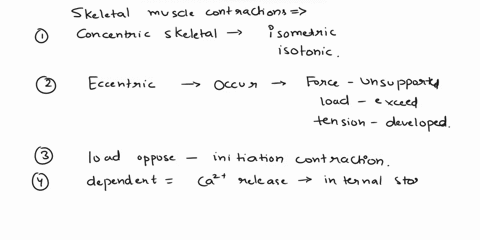 Skeletal muscle contractions =>
① Concentric skeletal → isometric
isotonic.
② Eccentric → Occur → Force - unsupported
load - exceed
tension - developed.
③ load oppose - initiation contraction.
④ dependent = Ca²⁺ release → internal sto